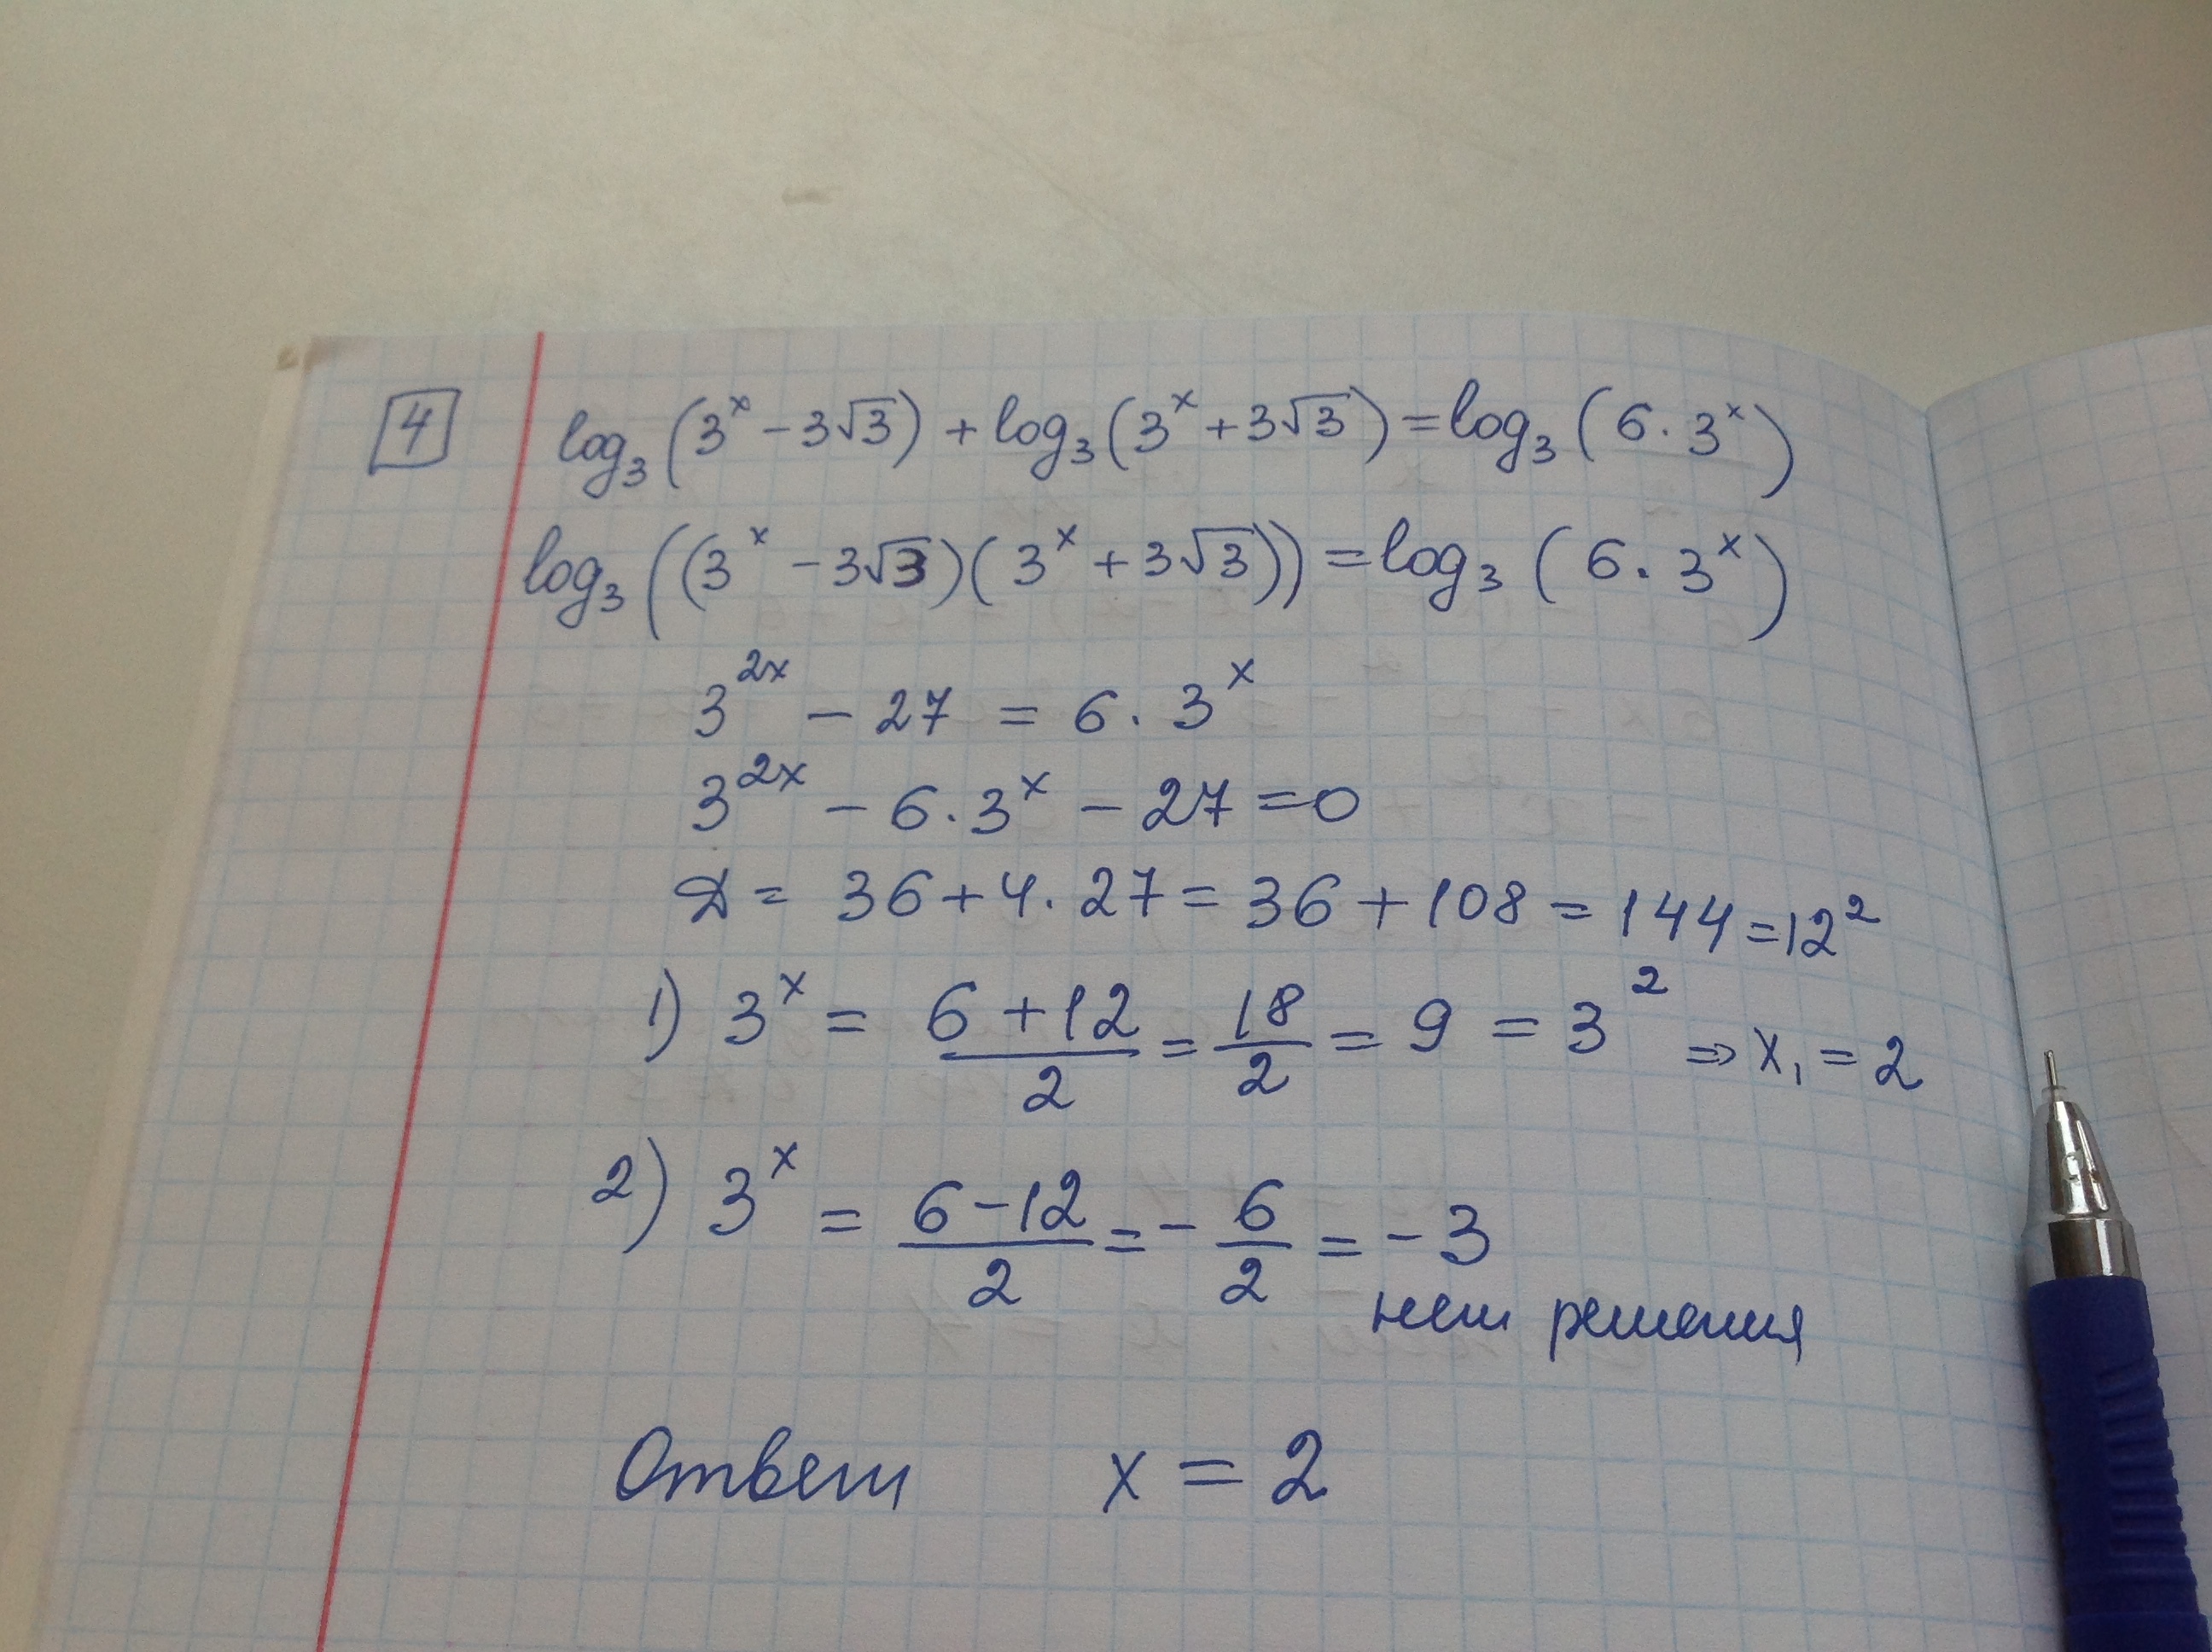 4 log₃(3ˣ - 3√3) + log₃(3ˣ + 3√3) = log₃(6 · 3ˣ)
log₃((3ˣ - 3√3)(3ˣ + 3√3)) = log₃(6 · 3ˣ)
3²ˣ - 27 = 6 · 3ˣ
3²ˣ - 6 · 3ˣ - 27 = 0
D = 36 + 4 · 27 = 36 + 108 = 144 = 12²
1) 3ˣ = (6 + 12)/2 = 18/2 = 9 = 3² ⇒ x₁ = 2
2) 3ˣ = (6 - 12)/2 = - 6/2 = - 3
нет решения
Ответ x = 2